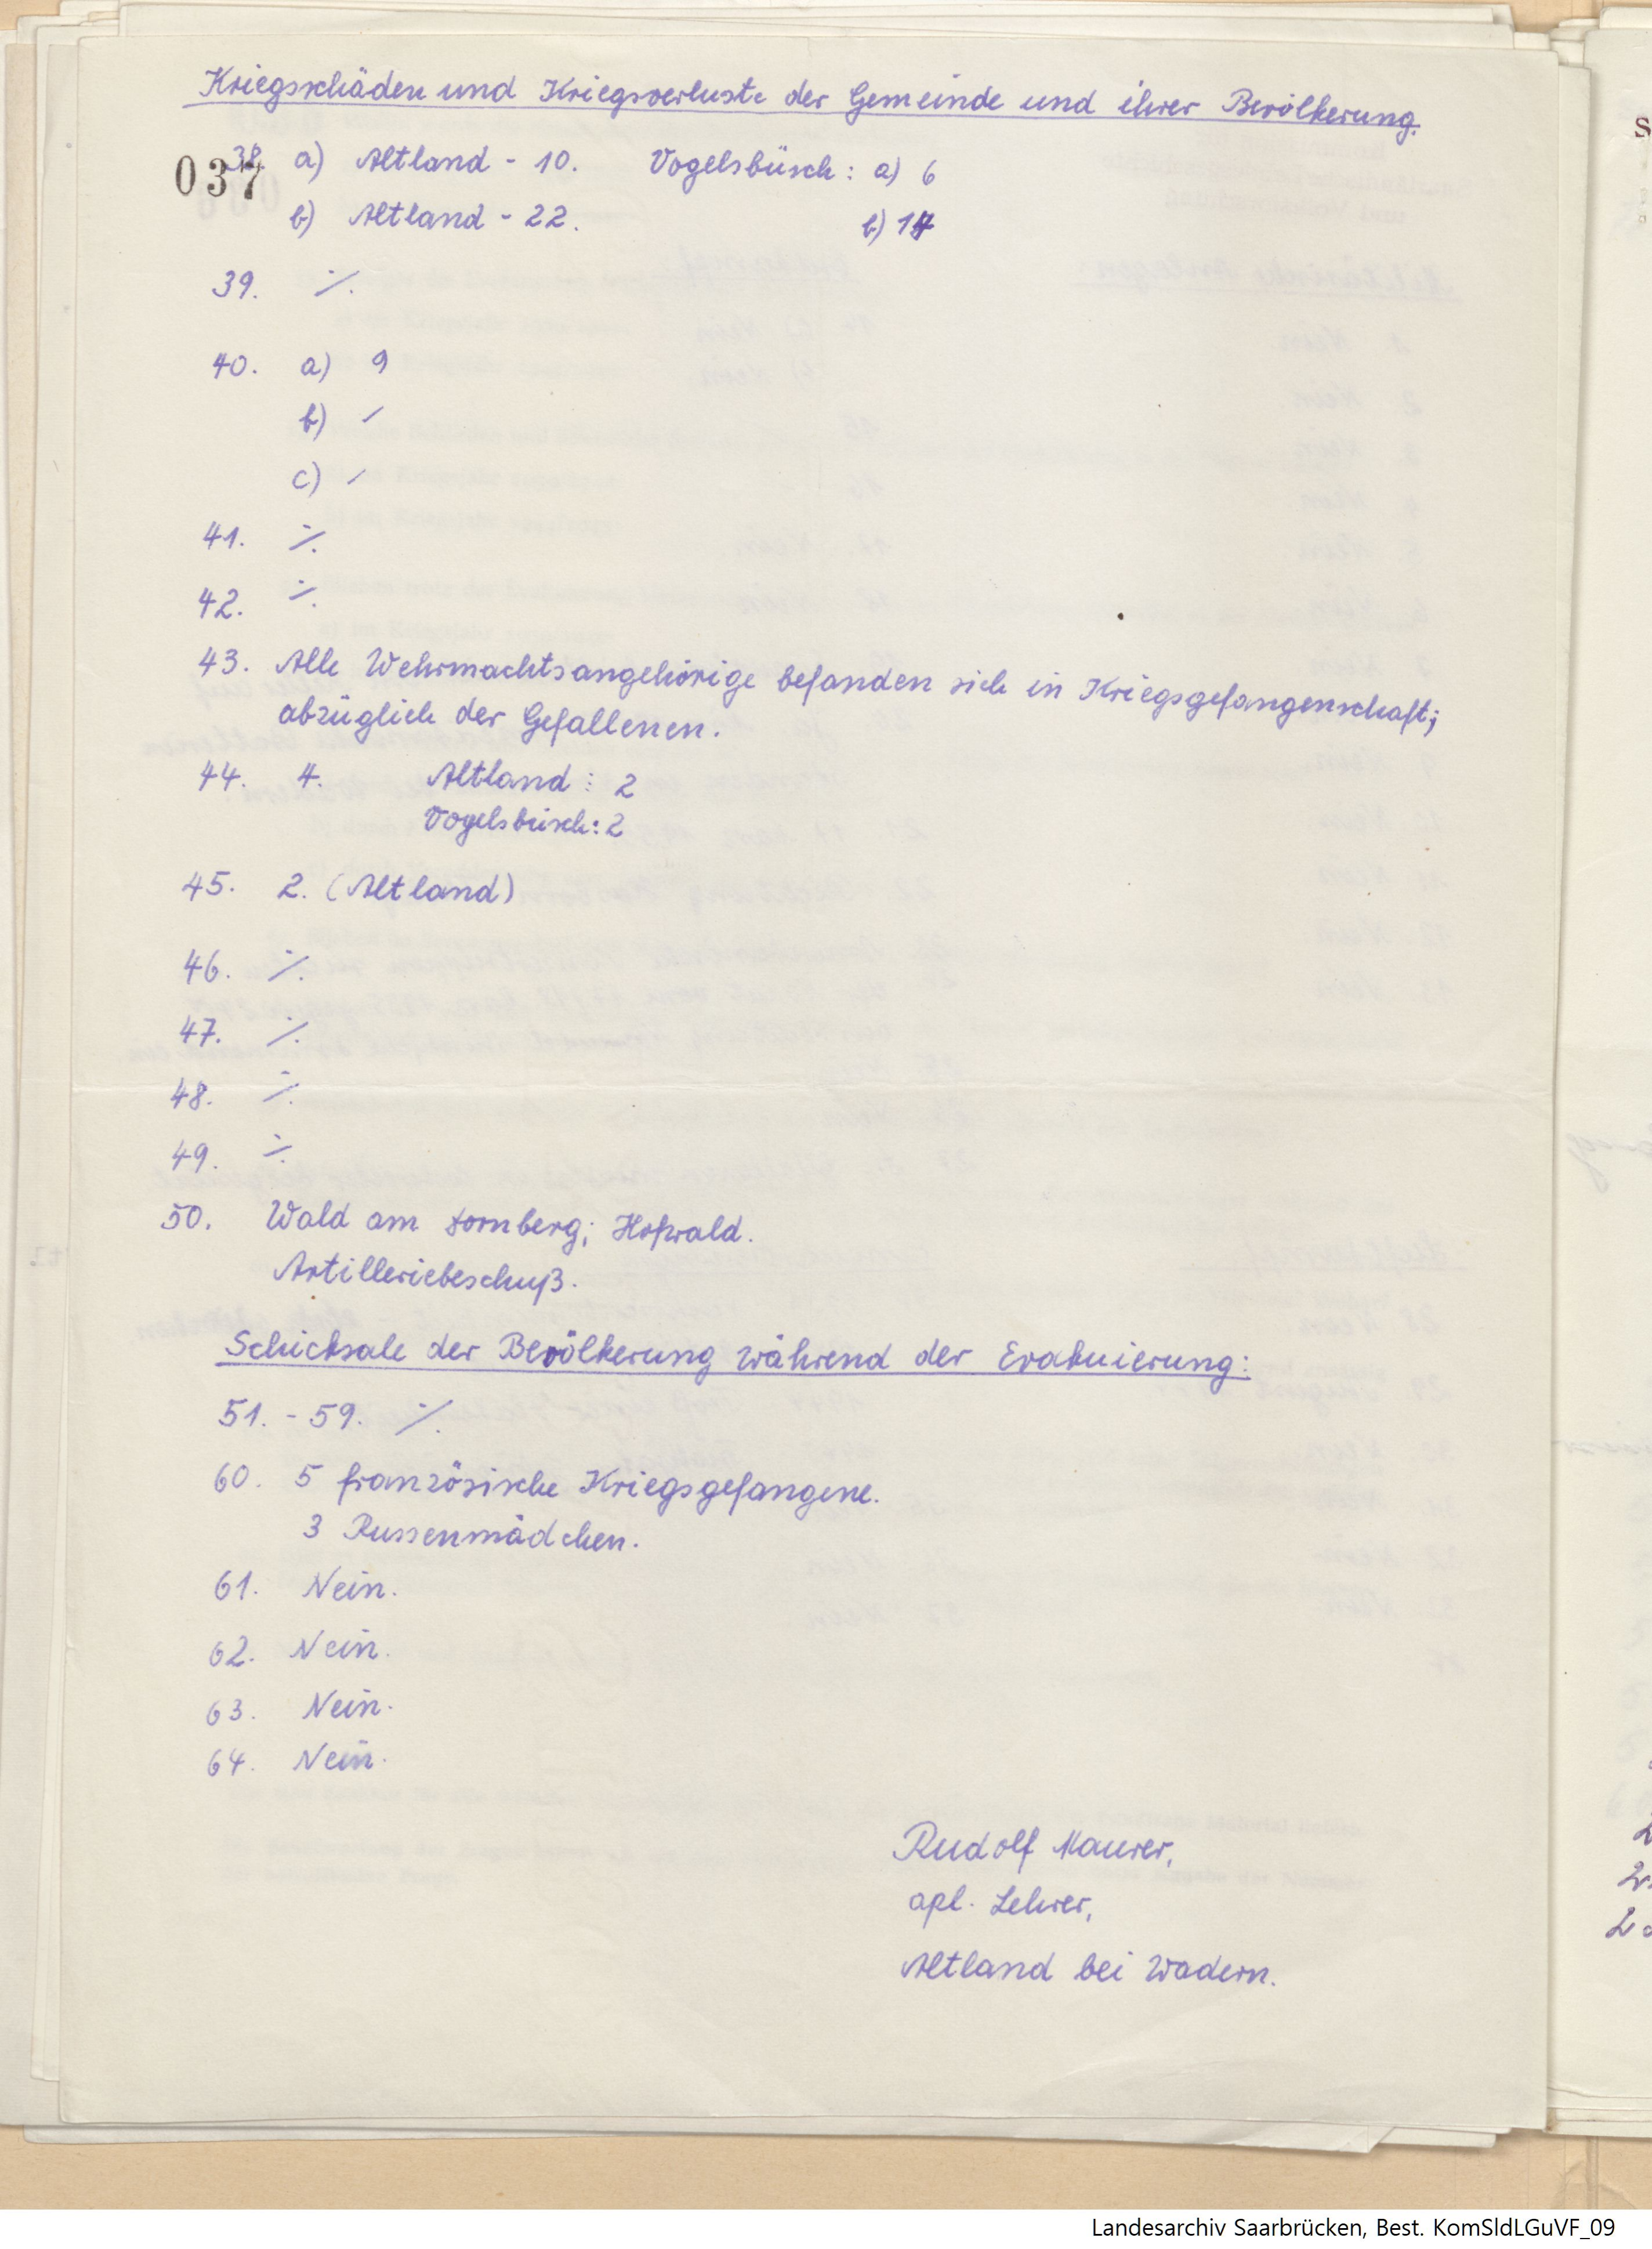 Kriegsschäden und Kriegsverluste der Gemeinde und ihrer Bevölkerung.
037
38. a) Altland - 10. Vogelsbüsch: a) 6
b) Altland - 22. b) 14
39. ·/.
40. a) 9
b) /
c) /
41. ·/.
42. ·/.
43. Alle Wehrmachtsangehörige befanden sich in Kriegsgefangenschaft;
abzüglich der Gefallenen.
44. 4. Altland: 2
Vogelsbüsch: 2
45. 2. (Altland)
46. ·/.
47. ·/.
48. ·/.
49. ·/.
50. Wald am Dornberg; Hofwald.
Artilleriebeschuß.
Schicksale der Bevölkerung während der Evakuierung:
51. - 59. ·/.
60. 5 französische Kriegsgefangene.
3 Russenmädchen.
61. Nein.
62. Nein.
63. Nein.
64. Nein.
Rudolf Maurer,
apl. Lehrer,
Altland bei Wadern.
Landesarchiv Saarbrücken, Best. KomSldLGuVF_09